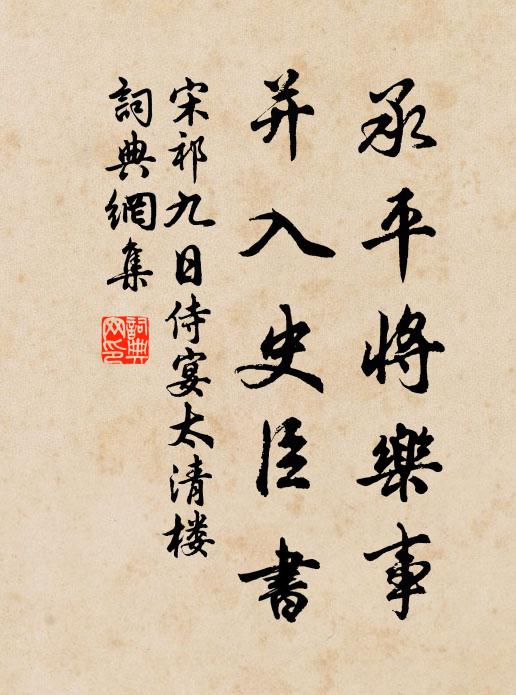 承平將樂事
并入史臣書
宋祁九日侍宴太清楼
詞典網集
詞典
网印